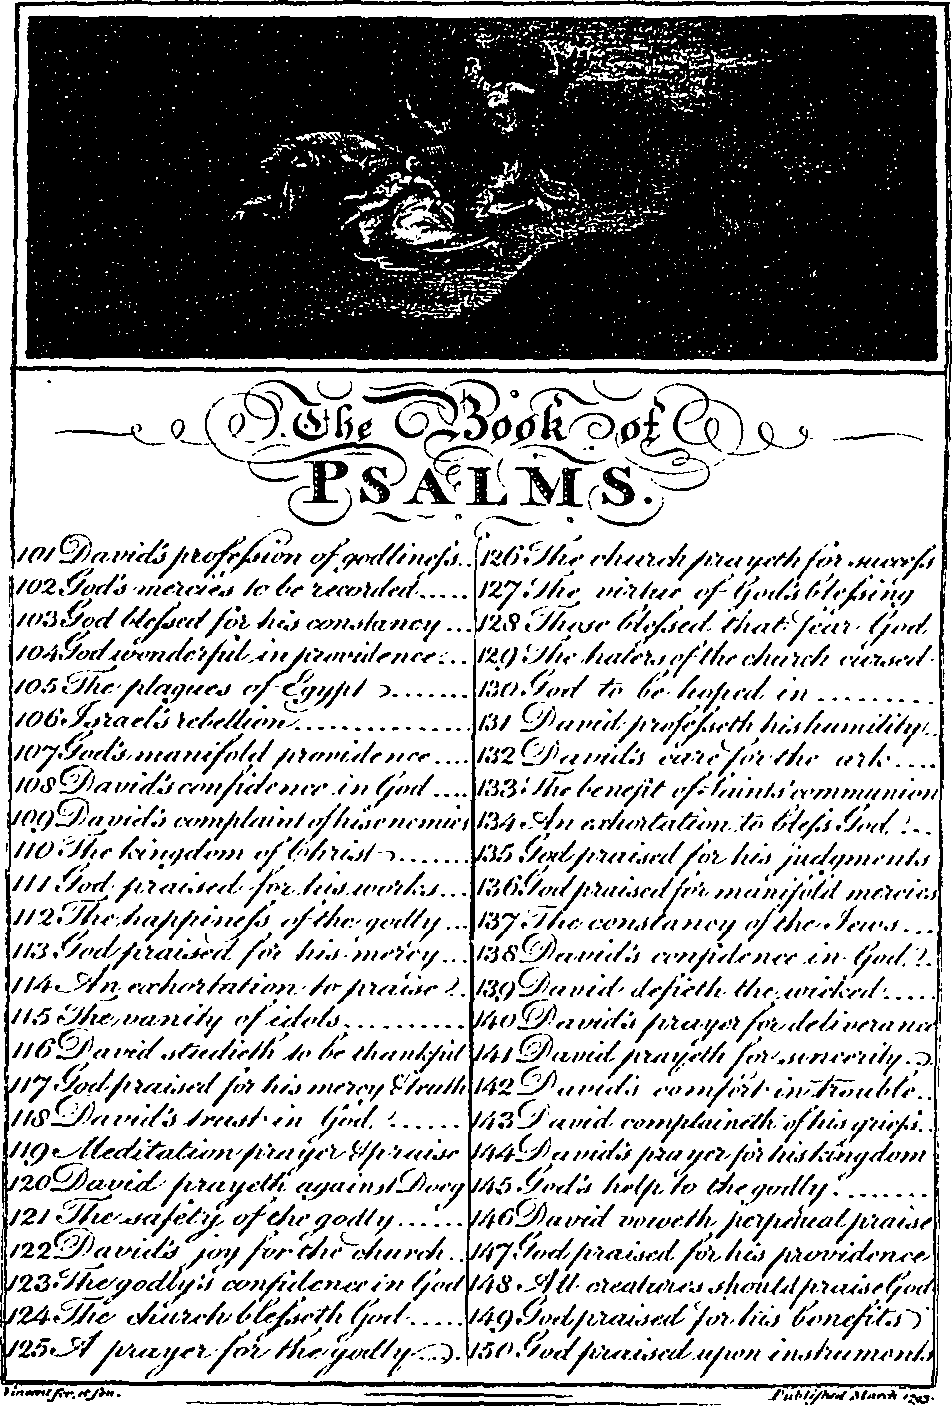 The Book of
PSALMS.
101 David's profession of godliness..
102 God's mercies to be recorded.....
103 God blessed for his constancy ...
104 God wonderful in providence...
105 The plagues of Egypt ........
106 Israel's rebellion...............
107 God's manifold providence ....
108 David's confidence in God ....
109 David's complaint of his enemies
110 The kingdom of Christ .......
111 God praised for his works...
112 The happiness of the godly ...
113 God praised for his mercy...
114 An exhortation to praise
115 The vanity of idols...........
116 David studieth to be thankful
117 God praised for his mercy & truth
118 David's trust in God .......
119 Meditation prayer & praise
120 David prayeth against Doeg
121 The safety of the godly......
122 David's joy for the church..
123 The godly's confidence in God
124 The church blesseth God.....
125 A prayer for the godly
126 The church prayeth for success
127 The virtue of God's blessing
128 Those blessed that fear God
129 The haters of the church cursed
130 God to be hoped in .........
131 David professeth his humility..
132 David's care for the ark....
133 The benefit of saints communion
134 An exhortation to bless God...
135 God praised for his judgments
136 God praised for manifold mercies
137 The constancy of the Jews...
138 David's confidence in God..
139 David defieth the wicked.....
140 David's prayer for deliverance
141 David prayeth for sincerity
142 David's comfort in trouble..
143 David complaineth of his griefs..
144 David's prayer for his kingdom
145 God's help to the godly........
146 David voweth perpetual praise
147 God praised for his providence
148 All creatures should praise God
149 God praised for his benefits
150 God praised upon instruments
Published March